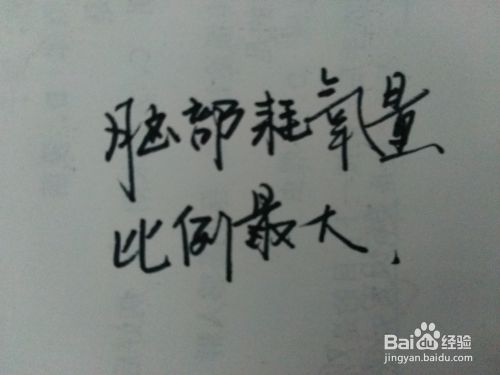 脑部耗氧量
比例最大.
Baidu经验
jingyan.baidu.com